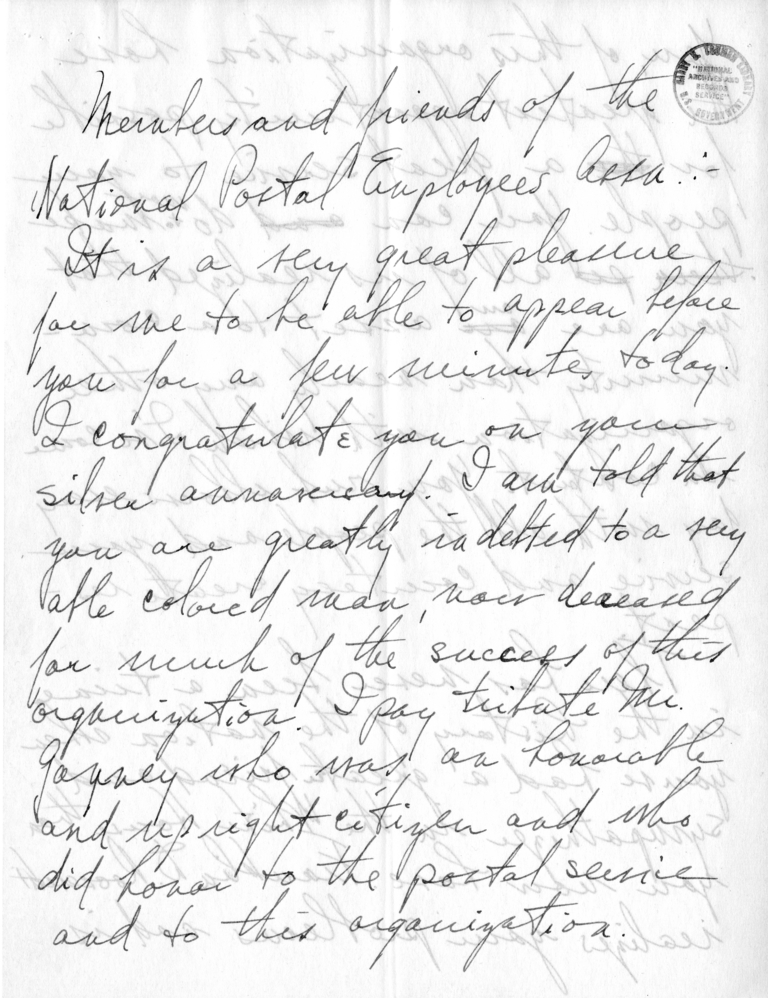 HARRY S. TRUMAN LIBRARY
"NATIONAL
ARCHIVES AND
RECORDS
SERVICE"
U.S. GOVERNMENT
Members and friends of the
National Postal Employees Assn.:-
It is a very great pleasure
for me to be able to appear before
you for a few minutes today.
I congratulate you on your
silver annaversary. I am told that
you are greatly indebted to a very
able colored man, now deceased
for much of the success of this
organization. I pay tribute Mr.
who was an honorable
and upright citizen and who
did honor to the postal service
and to this organization.